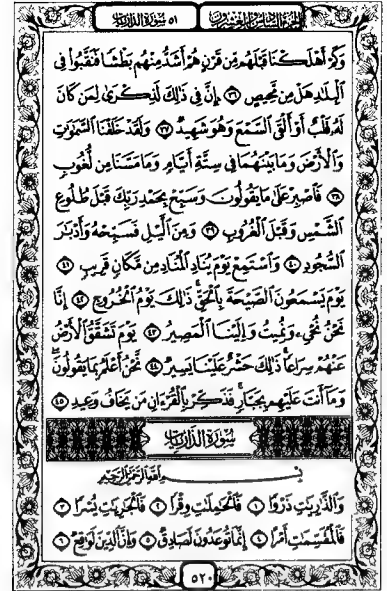 الجزء السادس والعشرون ٥١ سورة الذاريات
وَكَمْ أَهْلَكْنَا قَبْلَهُم مِّن قَرْنٍ هُمْ أَشَدُّ مِنْهُم بَطْشًا فَنَقَّبُوا۟ فِى
ٱلْبِلَـٰدِ هَلْ مِن مَّحِيصٍ ٣٦ إِنَّ فِى ذَٰلِكَ لَذِكْرَىٰ لِمَن كَانَ
لَهُۥ قَلْبٌ أَوْ أَلْقَى ٱلسَّمْعَ وَهُوَ شَهِيدٌ ٣٧ وَلَقَدْ خَلَقْنَا ٱلسَّمَـٰوَٰتِ
وَٱلْأَرْضَ وَمَا بَيْنَهُمَا فِى سِتَّةِ أَيَّامٍ وَمَا مَسَّنَا مِن لُّغُوبٍ
٣٨ فَٱصْبِرْ عَلَىٰ مَا يَقُولُونَ وَسَبِّحْ بِحَمْدِ رَبِّكَ قَبْلَ طُلُوعِ
ٱلشَّمْسِ وَقَبْلَ ٱلْغُرُوبِ ٣٩ وَمِنَ ٱلَّيْلِ فَسَبِّحْهُ وَأَدْبَـٰرَ
ٱلسُّجُودِ ٤٠ وَٱسْتَمِعْ يَوْمَ يُنَادِ ٱلْمُنَادِ مِن مَّكَانٍ قَرِيبٍ ٤١
يَوْمَ يَسْمَعُونَ ٱلصَّيْحَةَ بِٱلْحَقِّ ۚ ذَٰلِكَ يَوْمُ ٱلْخُرُوجِ ٤٢ إِنَّا
نَحْنُ نُحْىِۦ وَنُمِيتُ وَإِلَيْنَا ٱلْمَصِيرُ ٤٣ يَوْمَ تَشَقَّقُ ٱلْأَرْضُ
عَنْهُمْ سِرَاعًا ۚ ذَٰلِكَ حَشْرٌ عَلَيْنَا يَسِيرٌ ٤٤ نَّحْنُ أَعْلَمُ بِمَا يَقُولُونَ ۖ
وَمَآ أَنتَ عَلَيْهِم بِجَبَّارٍ ۖ فَذَكِّرْ بِٱلْقُرْءَانِ مَن يَخَافُ وَعِيدِ ٤٥
سُورَةُ الذَّارِيَاتِ
بِسْمِ ٱللَّهِ ٱلرَّحْمَـٰنِ ٱلرَّحِيمِ
وَٱلذَّٰرِيَـٰتِ ذَرْوًا ١ فَٱلْحَـٰمِلَـٰتِ وِقْرًا ٢ فَٱلْجَـٰرِيَـٰتِ يُسْرًا ٣
فَٱلْمُقَسِّمَـٰتِ أَمْرًا ٤ إِنَّمَا تُوعَدُونَ لَصَادِقٌ ٥ وَإِنَّ ٱلدِّينَ لَوَٰقِعٌ ٦
٥٢٠